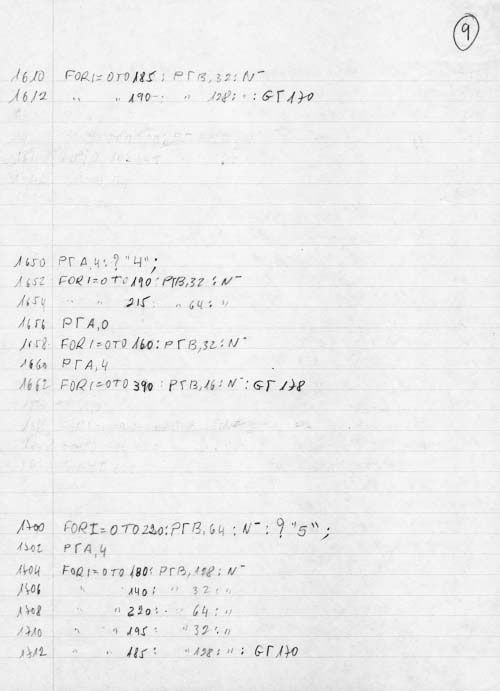 9
1610 FORI=0TO185: PГB,32: N-
1612 " " 190-: " 128: " : GГ170
1650 PГA,4: ? "4";
1652 FORI=0TO190: PГB,32: N-
1654 " " 215: " 64: "
1656 PГA,0
1658 FORI=0TO160: PГB,32: N-
1660 PГA,4
1662 FORI=0TO390: PГB,16: N-: GГ178
1700 FORI=0TO220: PГB,64: N-: ? "5";
1702 PГA,4
1704 FORI=0TO180: PГB,128: N-
1706 " 140: " 32: "
1708 " " 220: " 64: "
1710 " " 195: " 32: "
1712 " " 185: " 128: ": GГ170